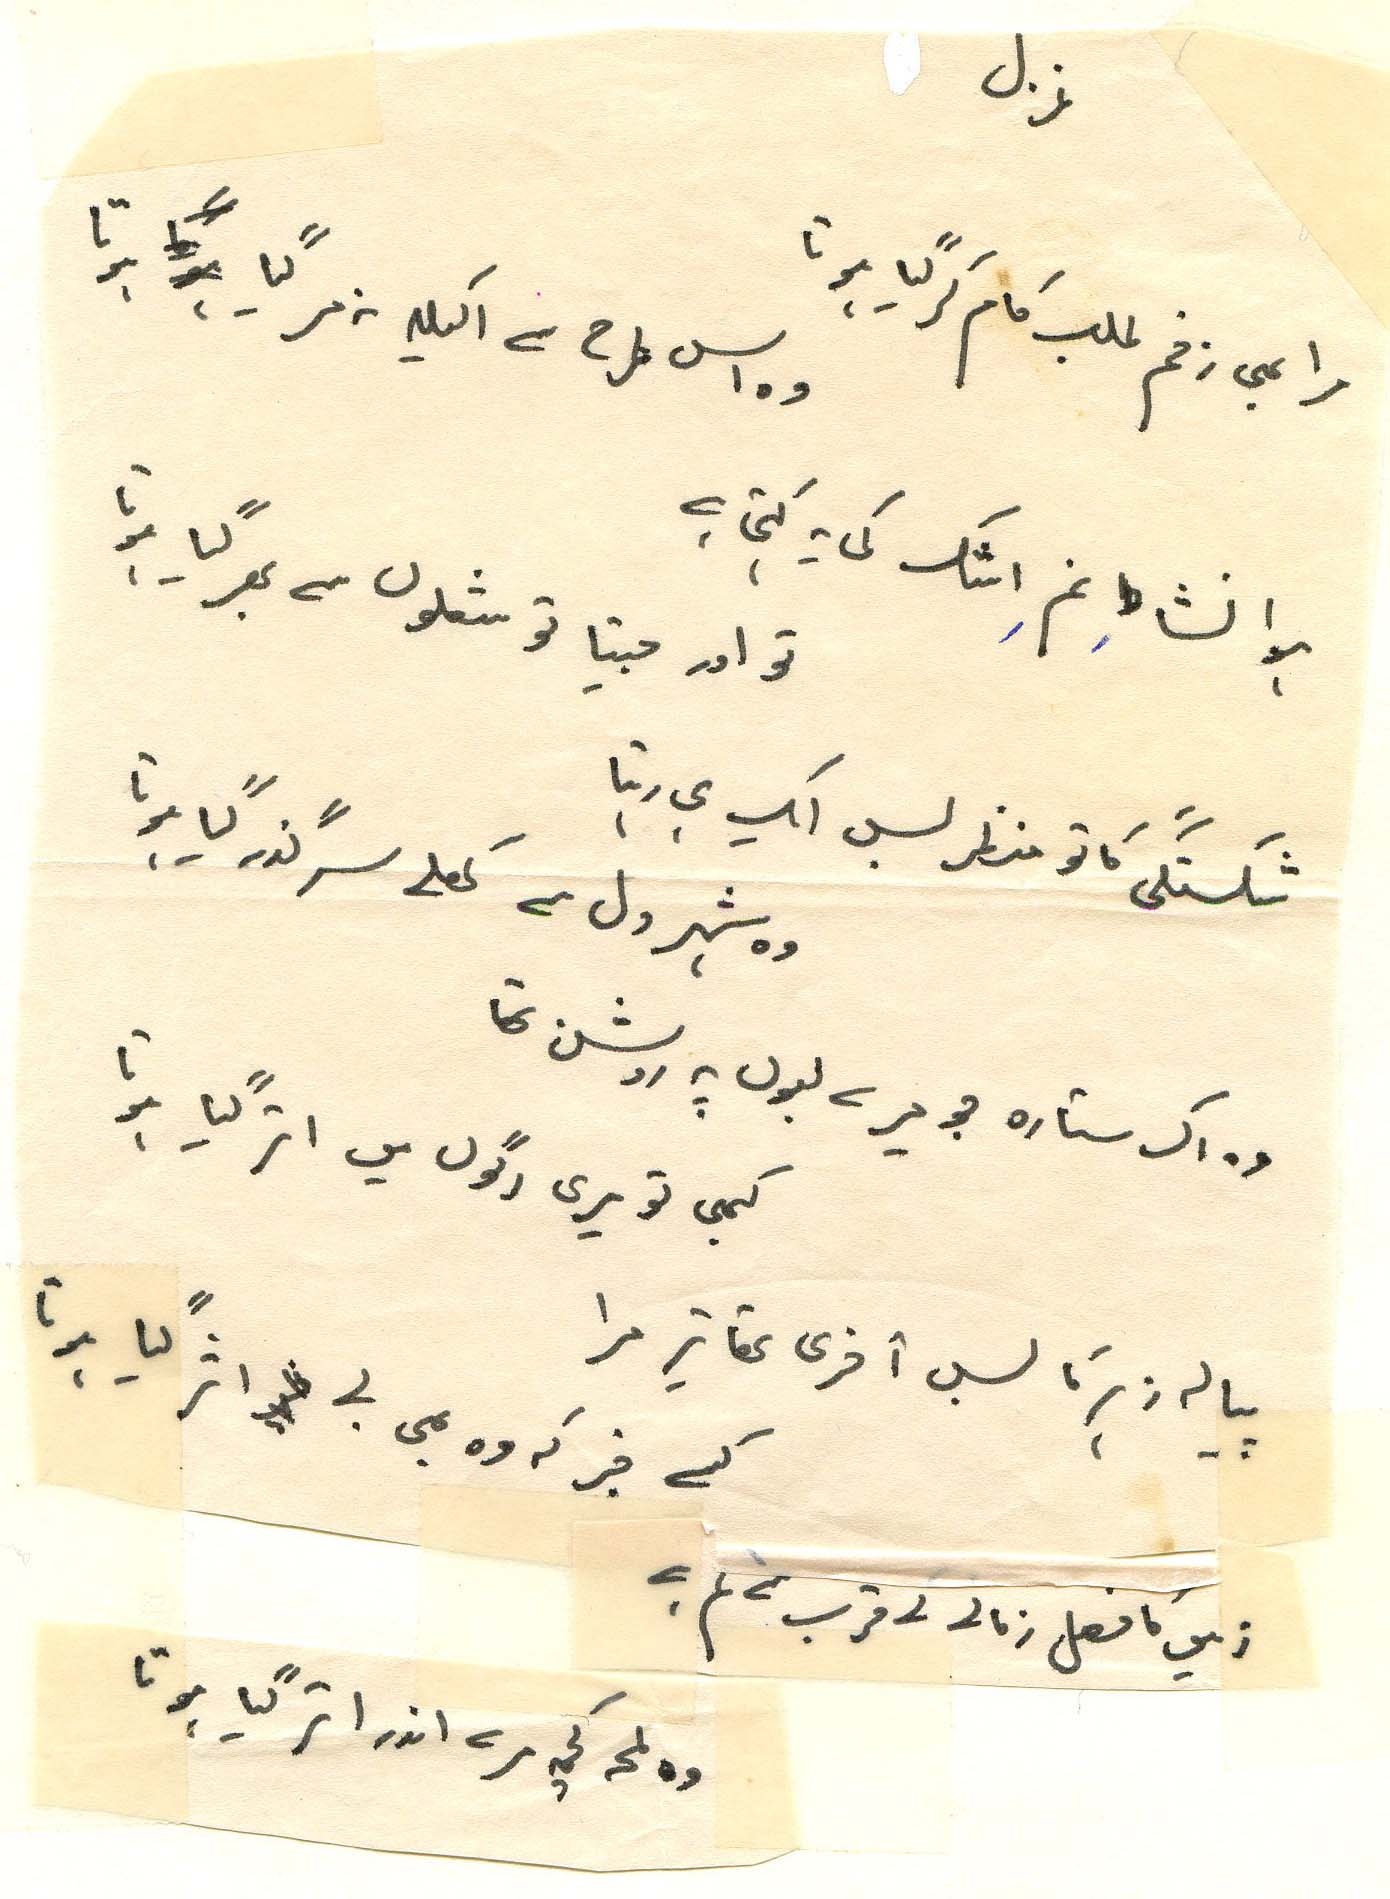 غزل
مرا بھی زخم طلب کام کر گیا ہوتا
وہ اس طرح سے اکیلا نہ مر گیا ہوتا
ہوا نشاطِ غمِ اشک کی یہ کہتی ہے
تو اور جیتا تو شعلوں سے بھر گیا ہوتا
شکستگی کا تو منظر بس ایک ہی رہتا
وہ شہر دل سے کھلے سر گذر گیا ہوتا
وہ اک ستارہ جو میرے لبوں پہ روشن تھا
کبھی تو میری رگوں میں اتر گیا ہوتا
پیالہ زہر کا بس آخری تھا تیر مرا
کسے خبر کہ وہ بھی بے اثر گیا ہوتا
زمیں کا فصل زمانے کے قرب سے کم ہے
وہ لمحہ کچھ مرے اندر اتر گیا ہوتا